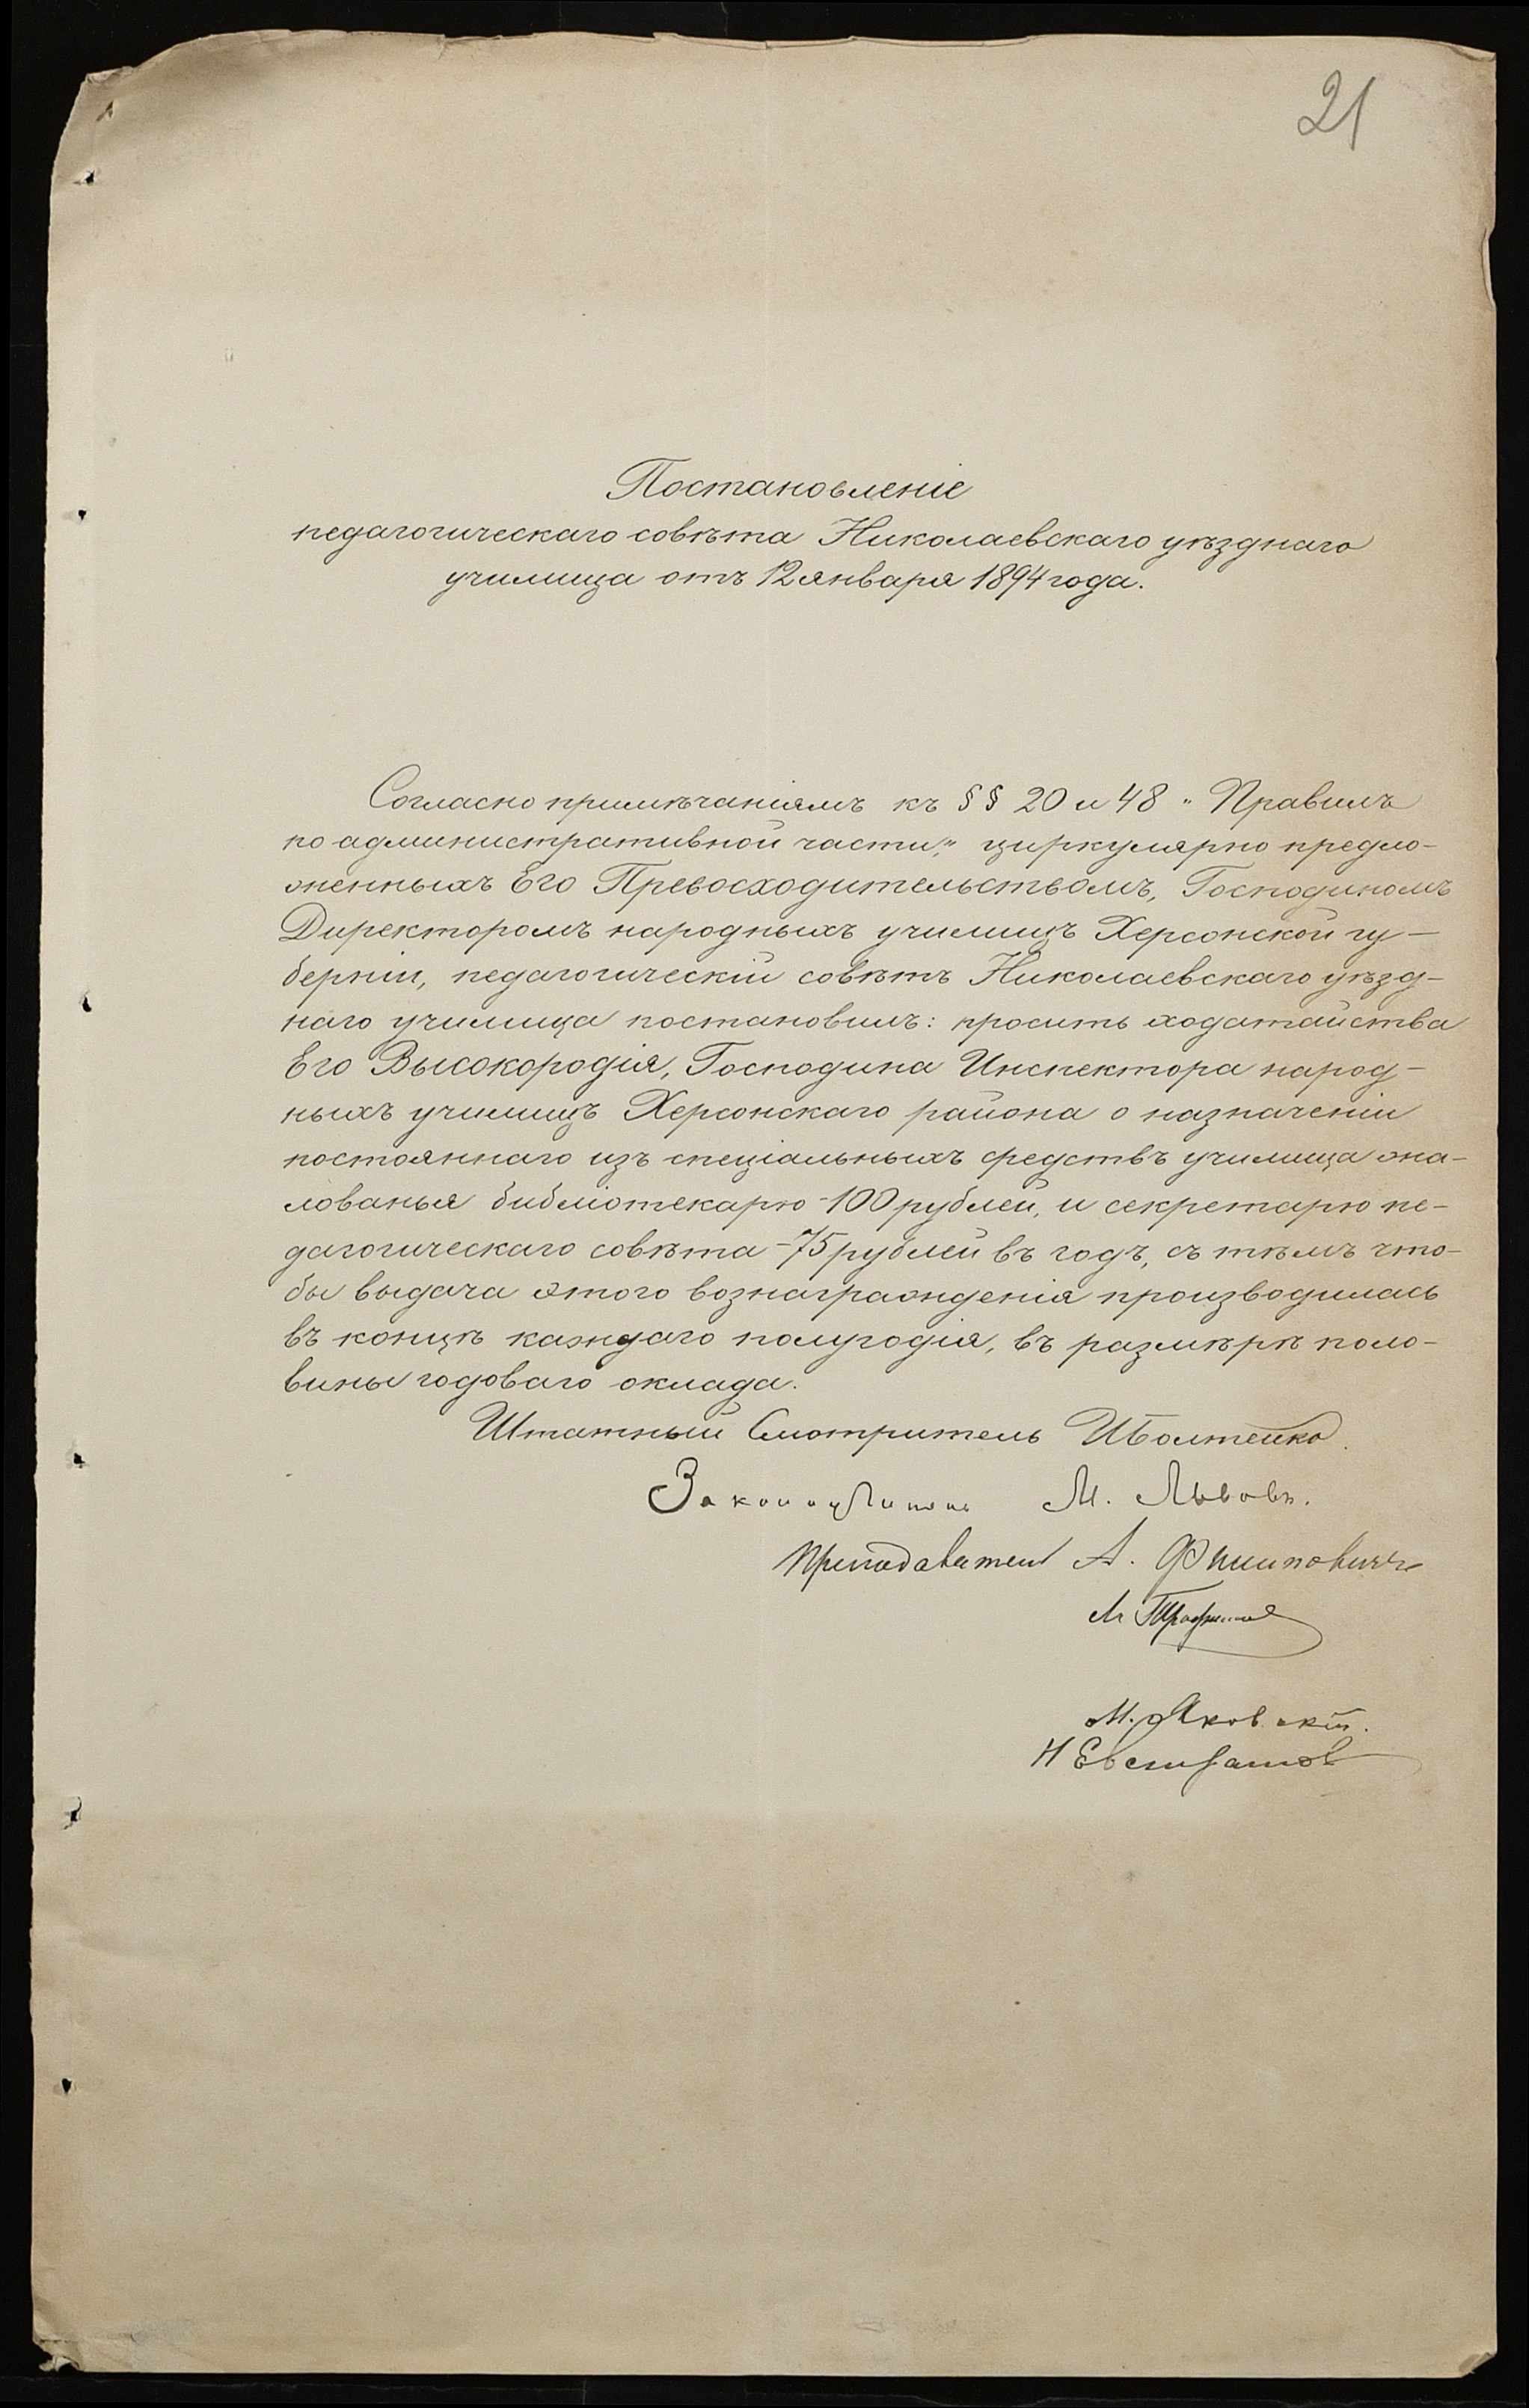 21
Постановленіе
педагогическаго совѣта Николаевскаго уѣзднаго
училища отъ 12 января 1894 года.
Согласно примѣчаніямъ къ §§ 20 и 48 „Правилъ
по административной части", циркулярно предло-
женныхъ Его Превосходительствомъ, Господиномъ
Директоромъ народныхъ училищъ Херсонской гу-
берніи, педагогическій совѣтъ Николаевскаго уѣзд-
наго училища постановилъ: просить ходатайства
Его Высокородія, Господина Инспектора народ-
ныхъ училищъ Херсонскаго района о назначеніи
постояннаго изъ спеціальныхъ средствъ училища жа-
лованья библіотекарю - 100 рублей, и секретарю пе-
дагогическаго совѣта - 75 рублей въ годъ, съ тѣмъ что-
бы выдача этого вознагражденія производилась
въ концѣ каждаго полугодія, въ размѣрѣ поло-
вины годоваго оклада.
Штатный Смотритель
Законоучитель М. Львовъ.
Преподаватели А. Филиповичъ
М. Яковскій.
Н Евстратов